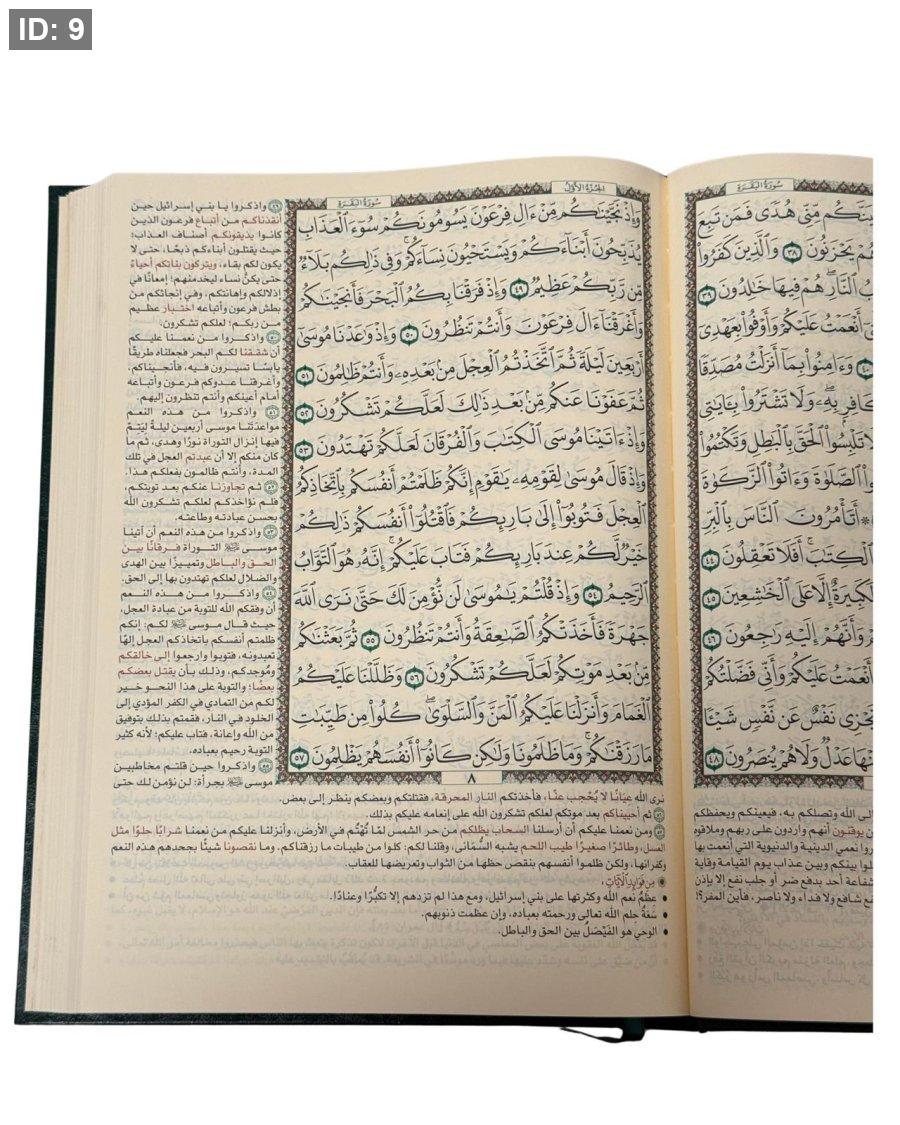 ID: 9
سُورَةُ البَقَرَةِ
الجُزْءُ الأَوَّلُ
وَإِذْ نَجَّيْنَٰكُم مِّنْ ءَالِ فِرْعَوْنَ يَسُومُونَكُمْ سُوٓءَ ٱلْعَذَابِ
يُذَبِّحُونَ أَبْنَآءَكُمْ وَيَسْتَحْيُونَ نِسَآءَكُمْ ۚ وَفِى ذَٰلِكُم بَلَآءٌ
مِّن رَّبِّكُمْ عَظِيمٌ ٤٩ وَإِذْ فَرَقْنَا بِكُمُ ٱلْبَحْرَ فَأَنجَيْنَٰكُمْ
وَأَغْرَقْنَآ ءَالَ فِرْعَوْنَ وَأَنتُمْ تَنظُرُونَ ٥٠ وَإِذْ وَٰعَدْنَا مُوسَىٰٓ
أَرْبَعِينَ لَيْلَةً ثُمَّ ٱتَّخَذْتُمُ ٱلْعِجْلَ مِنۢ بَعْدِهِۦ وَأَنتُمْ ظَٰلِمُونَ ٥١
ثُمَّ عَفَوْنَا عَنكُم مِّنۢ بَعْدِ ذَٰلِكَ لَعَلَّكُمْ تَشْكُرُونَ ٥٢
وَإِذْ ءَاتَيْنَا مُوسَى ٱلْكِتَٰبَ وَٱلْفُرْقَانَ لَعَلَّكُمْ تَهْتَدُونَ ٥٣
وَإِذْ قَالَ مُوسَىٰ لِقَوْمِهِۦ يَٰقَوْمِ إِنَّكُمْ ظَلَمْتُمْ أَنفُسَكُم بِٱتِّخَاذِكُمُ
ٱلْعِجْلَ فَتُوبُوٓا۟ إِلَىٰ بَارِئِكُمْ فَٱقْتُلُوٓا۟ أَنفُسَكُمْ ذَٰلِكُمْ
خَيْرٌ لَّكُمْ عِندَ بَارِئِكُمْ فَتَابَ عَلَيْكُمْ ۚ إِنَّهُۥ هُوَ ٱلتَّوَّابُ
ٱلرَّحِيمُ ٥٤ وَإِذْ قُلْتُمْ يَٰمُوسَىٰ لَن نُّؤْمِنَ لَكَ حَتَّىٰ نَرَى ٱللَّهَ
جَهْرَةً فَأَخَذَتْكُمُ ٱلصَّٰعِقَةُ وَأَنتُمْ تَنظُرُونَ ٥٥ ثُمَّ بَعَثْنَٰكُم
مِّنۢ بَعْدِ مَوْتِكُمْ لَعَلَّكُمْ تَشْكُرُونَ ٥٦ وَظَلَّلْنَا عَلَيْكُمُ
ٱلْغَمَامَ وَأَنزَلْنَا عَلَيْكُمُ ٱلْمَنَّ وَٱلسَّلْوَىٰ ۖ كُلُوا۟ مِن طَيِّبَٰتِ
مَا رَزَقْنَٰكُمْ ۖ وَمَا ظَلَمُونَا وَلَٰكِن كَانُوٓا۟ أَنفُسَهُمْ يَظْلِمُونَ ٥٧
٨
٤٩ واذكروا يا بني إسرائيل حين
أنقذناكم من أتباع فرعون الذين
كانوا يذيقونكم أصناف العذاب؛
حيث يقتلون أبناءكم ذبحًا، حتى لا
يكون لكم بقاء، ويتركون بناتكم أحياءً
حتى يكنَّ نساء ليخدمنهم؛ إمعانًا في
إذلالكم وإهانتكم، وفي إنجائكم من
بطش فرعون وأتباعه اختبار عظيم
من ربكم؛ لعلكم تشكرون.
٥٠ واذكروا من نعمنا عليكم
أن شققنا لكم البحر فجعلناه طريقًا
يابسًا تسيرون فيه، فأنجيناكم،
وأغرقنا عدوكم فرعون وأتباعه
أمام أعينكم وأنتم تنظرون إليهم.
٥١ واذكروا من هذه النعم
مواعدتنا موسى أربعين ليلة ليتم
فيها إنزال التوراة نورًا وهدى، ثم ما
كان منكم إلا أن عبدتم العجل في تلك
المدة، وأنتم ظالمون بفعلكم هذا.
٥٢ ثم تجاوزنا عنكم بعد توبتكم،
فلم نؤاخذكم لعلكم تشكرون الله
بحسن عبادته وطاعته.
٥٣ واذكروا من هذه النعم أن آتينا
موسى ﷺ التوراة فرقانًا بين
الحق والباطل وتمييزًا بين الهدى
والضلال لعلكم تهتدون بها إلى الحق.
٥٤ واذكروا من هذه النعم
أن وفقكم الله للتوبة من عبادة العجل،
حيث قال موسى ﷺ لكم: إنكم
ظلمتم أنفسكم باتخاذكم العجل إلهًا
تعبدونه، فتوبوا وارجعوا إلى خالقكم
وموجدكم، وذلك بأن يقتل بعضكم
بعضًا؛ والتوبة على هذا النحو خير
لكم من التمادي في الكفر المؤدي إلى
الخلود في النار، فقمتم بذلك بتوفيق
من الله وإعانة، فتاب عليكم؛ لأنه كثير
التوبة رحيم بعباده.
٥٥ واذكروا حين قلتم مخاطبين
موسى ﷺ بجرأة: لن نؤمن لك حتى
نرى الله عيانًا لا يُحْجب عنَّا، فأخذتكم النار المحرقة، فقتلتكم وبعضكم ينظر إلى بعض.
٥٦ ثم أحييناكم بعد موتكم لعلكم تشكرون الله على إنعامه عليكم بذلك.
٥٧ ومن نعمنا عليكم أن أرسلنا السحاب يظلكم من حر الشمس لمَّا تُهْتُم في الأرض، وأنزلنا عليكم من نعمنا شرابًا حلوًا مثل
العسل، وطائرًا صغيرًا طيب اللحم يشبه السُّمَانى، وقلنا لكم: كلوا من طيبات ما رزقناكم. وما نقصونا شيئًا بجحدهم هذه النعم
وكفرانها، ولكن ظلموا أنفسهم بنقص حظها من الثواب وتعريضها للعقاب.
مِن فَوَائِدِ الآيَاتِ
• عِظَمُ نعم الله وكثرتها على بني إسرائيل، ومع هذا لم تزدهم إلا تكبُّرًا وعنادًا.
• سَعَةُ حلم الله تعالى ورحمته بعباده، وإن عظمت ذنوبهم.
• الوحي هو الفَيْصَلُ بين الحق والباطل.
سُورَةُ البَقَرَةِ
مِّنِّى هُدًى فَمَن تَبِعَ
يَحْزَنُونَ ٣٨ وَٱلَّذِينَ كَفَرُوا۟
ٱلنَّارِ ۖ هُمْ فِيهَا خَٰلِدُونَ ٣٩
أَنْعَمْتُ عَلَيْكُمْ وَأَوْفُوا۟ بِعَهْدِىٓ
٤٠ وَءَامِنُوا۟ بِمَآ أَنزَلْتُ مُصَدِّقًا
كَافِرٍۭ بِهِۦ ۖ وَلَا تَشْتَرُوا۟ بِـَٔايَٰتِى
تَلْبِسُوا۟ ٱلْحَقَّ بِٱلْبَٰطِلِ وَتَكْتُمُوا۟
ٱلصَّلَوٰةَ وَءَاتُوا۟ ٱلزَّكَوٰةَ
۞ أَتَأْمُرُونَ ٱلنَّاسَ بِٱلْبِرِّ
ٱلْكِتَٰبَ ۚ أَفَلَا تَعْقِلُونَ ٤٤
لَكَبِيرَةٌ إِلَّا عَلَى ٱلْخَٰشِعِينَ ٤٥
وَأَنَّهُمْ إِلَيْهِ رَٰجِعُونَ ٤٦
أَنْعَمْتُ عَلَيْكُمْ وَأَنِّى فَضَّلْتُكُمْ
تَجْزِى نَفْسٌ عَن نَّفْسٍ شَيْـًٔا
عَدْلٌ وَلَا هُمْ يُنصَرُونَ ٤٨
الله وتصلكم به، فيعينكم ويحفظكم
يوقنون أنهم واردون على ربهم وملاقوه
نعمي الدينية والدنيوية التي أنعمت بها
بينكم وبين عذاب يوم القيامة وقاية
شفاعة أحد بدفع ضر أو جلب نفع إلا بإذن
شافع ولا فداء، ولا ناصر، فأين المفر؟!